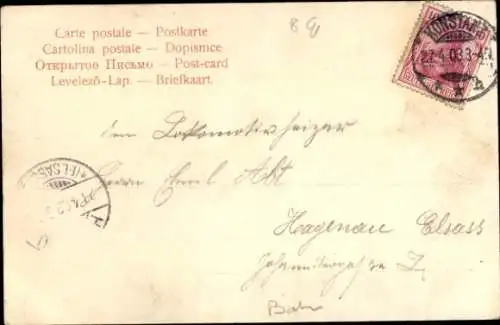 Carte postale — Postkarte
Cartolina postale — Dopisnice
Открытое Письмо — Post-card
Levelező-Lap. — Briefkaart.
KONSTANZ
27.4.03.3-4N
dem Lokomotivheizer
Herrn Emil Abt
Hagenau Elsass